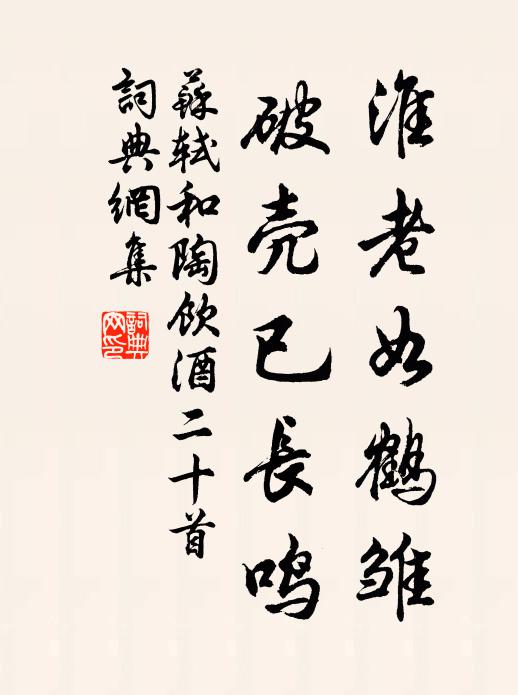 淮老如鹤雏
破壳已長鸣
蘇軾和陶飲酒二十首
詞典網集
詞典
网印